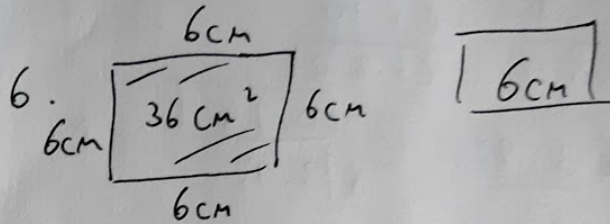 6cm
6.
6cm
36 cm²
6cm
6cm
6cm